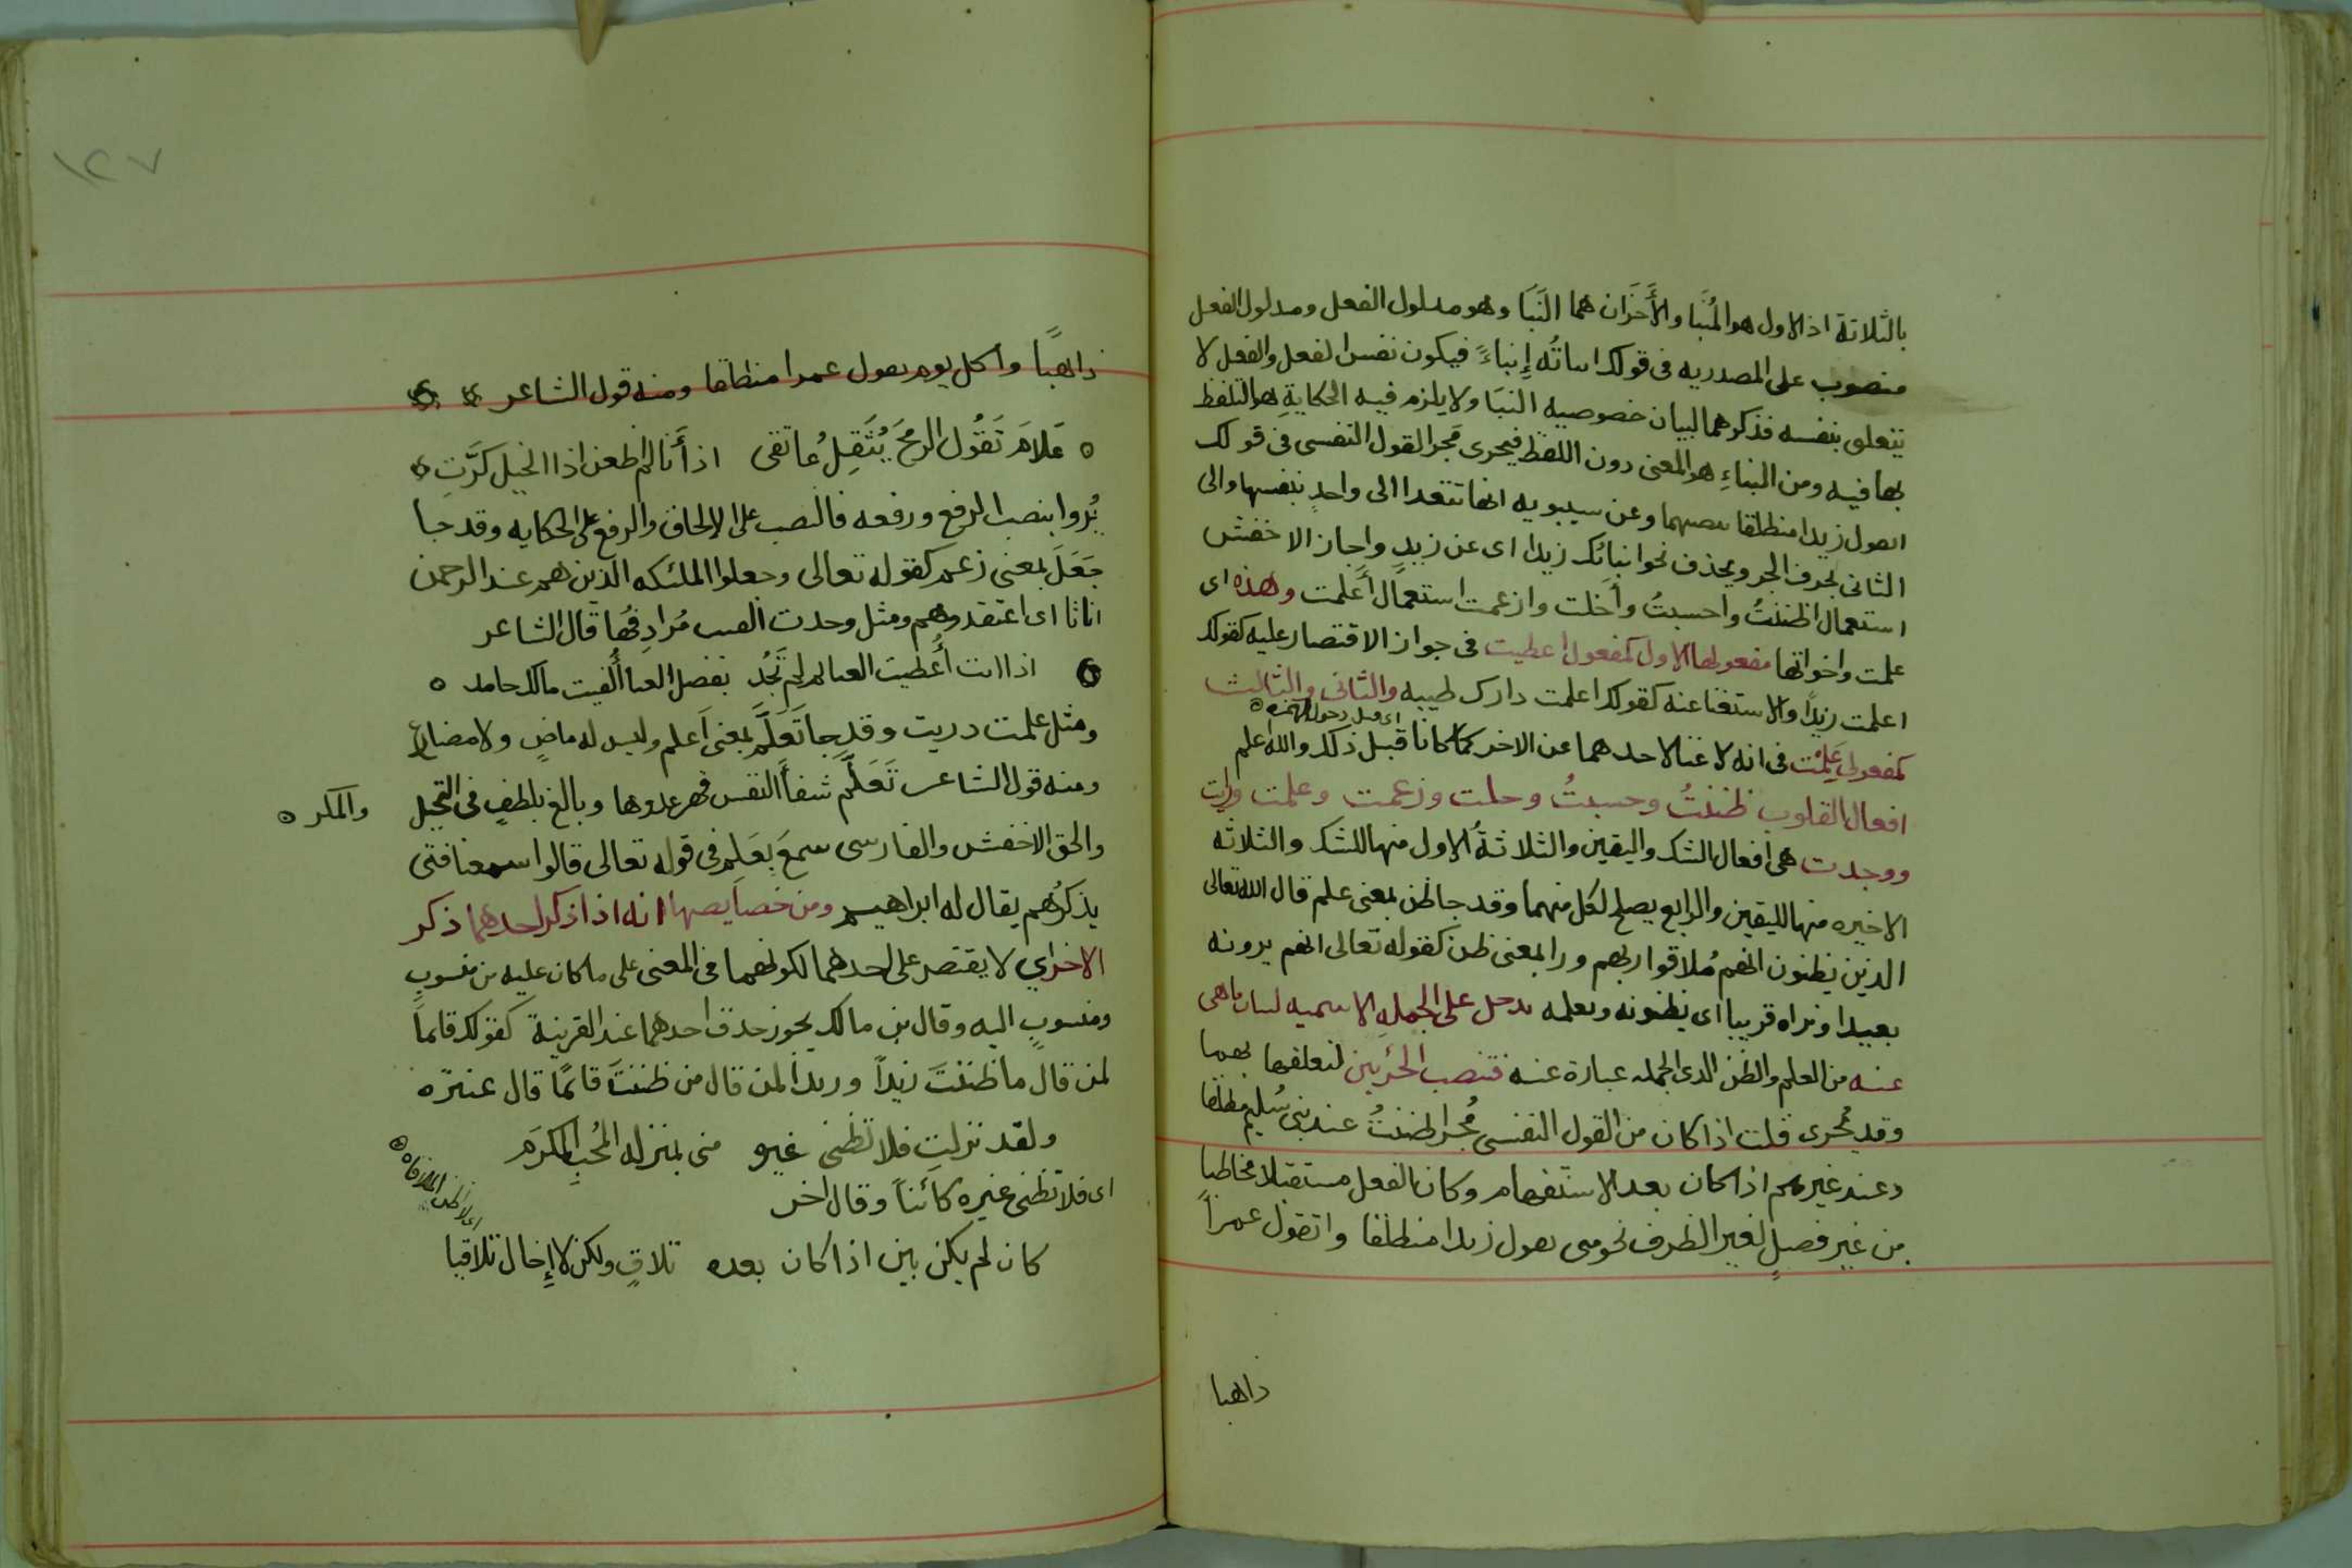 بالثلاثة اذ الاول هو المُنَبَا والأَخَرَان هما النَبَا وهو مدلول الفعل ومدلول الفعل
منصوب على المصدريه فى قولك انباتُه إِنباءً فيكون نفس الفعل والفعل لا
يتعلق بنفسه فذكرهما لبيان خصوصيه النبَا ولا يلزم فيه الحكايةِ هو التلفظ
بها فيه ومن النباءِ هو المعنى دون اللفظ فيجرى مَجرا القول النفسى فى قولك
اتقول زيدا منطلقا بنصبهما وعن سيبويه انها تتعدا الى واحدٍ بنفسها والى
الثانى بحرف الجر ويحذف نحو انباتك زيدا اى عن زيدٍ واجاز الاخفش
استعمال اظننتُ واحسبتُ وأَخلت وازعمت استعمال أَعلمت وهذه اى
علمت واخواتها مفعولها الاول كمفعول اعطيت فى جواز الاقتصار عليه كقولك
اعلمت زيدًا والاستغنا عنه كقولك اعلمت دارك طيبه والثانى والثالث
اى قبل دخول الهمزه ه
كمفعولى عَلِمْت فى انه لا غنا لاحدهما عن الاخر كما كانا قبل ذلك والله اعلم
افعال القلوب ظننتُ وحسبتُ وخلت وزعمت وعلمت ورايت
ووجدت هى افعال الشك واليقين والثلاثةُ الاول منها للشك والثلاثه
الاخيره منها لليقين والرابع يصلح لكل منهما وقد جا ظن بمعنى علم قال الله تعالى
الذين يظنون انهم مُلاقوا ربهم ورا بمعنى ظن كقوله تعالى انهم يرونه
بعيدا ونراه قريبا اى يظنونه ونعلمه تدخل على الجملهِ الاسميه لبيان ما هى
عنه من العلم والظن الذى الجمله عبارة عنه فتنصب الجزئين لتعلقها بهما
وقد يُجرى قلت اذا كان من القول النفسى مُجرا ظننتُ عند بنى سُليم مطلقا
وعند غيرهم اذا كان بعد الاستفهام وكان الفعل مستقبلا مخاطبا
من غير فصلٍ لغير الظرف نحو متى تقول زيدا منطلقا واتقول عمراً
ذاهبا
١٢٧
ذاهبًا واكل يوم تقول عمرا منطلقا ومنه قول الشاعر
ه عَلامَ تَقُول الرمحَ يُثقِلُ عاتقى اذ أَنا لم اطعن اذا الخيل كرَّتِ ه
يُروا بنصب الرمح ورفعه فالنصب على الالحاق والرفع على الحكايه وقد جا
جَعَلَ بمعنى زعم كقوله تعالى وجعلوا الملئكه الذين هم عند الرحمن
اناثا اى اعتقدوهم ومثل وجدت الفيت مُرادِفُها قال الشاعر
اذا انت أُعطيت الغنا ثم لم تَجُد بفضل الغنا أُلفيت مالك حامد ه
ومثل علمت دريت وقد جا تَعَلَّم بمعنى اعلم وليس له ماضٍ ولا مضارع
ومنه قول الشاعر تَعَلَّم شفاَ النفس قهر عدوها وبالغ بلطفٍ فى التحيل والمكر ه
والحق الاخفش والفارسى سمعَ بِعَلِم فى قوله تعالى قالوا سمعنا فتى
يذكرُهم يقال له ابراهيم ومن خصايصها انه اذا ذكر احدهما ذكر
الاخر اى لا يقتصر على احدهما لكونهما فى المعنى على ما كان عليه من منسوبٍ
ومنسوبٍ اليه وقال بن مالك يجوز حذف احدهما عند القرينة كقولك قائماً
لمن قال ما ظننتَ زيداً وزيدا لمن قال من ظننتَ قائمًا قال عنتره
ولقد نزلتِ فلا تظنى غيره منى بمنزله المُحَب المكرَم
اى فلا تظنى غيره كائناً وقال اخر
كان لم يكن بين اذا كان بعده تلاقٍ ولكن لا إِخال تلاقيا